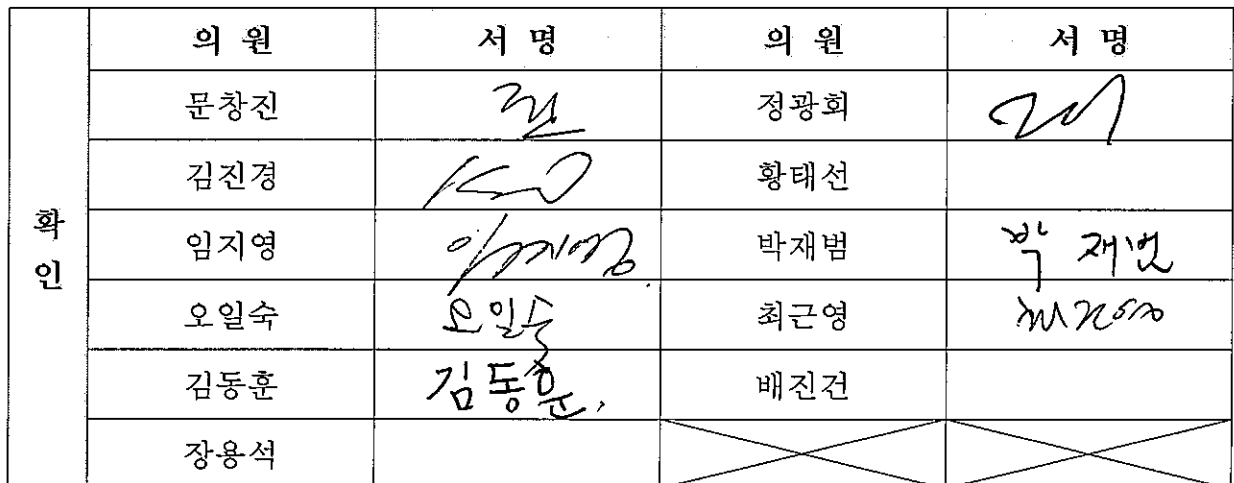 의 원 서 명 의 원 서 명
문창진 정광회
김진경 황태선
확 인
임지영 임지영 박재범 박재범
오일숙 오일숙 최근영 최근영
김동훈 김동훈. 배진건
장용석